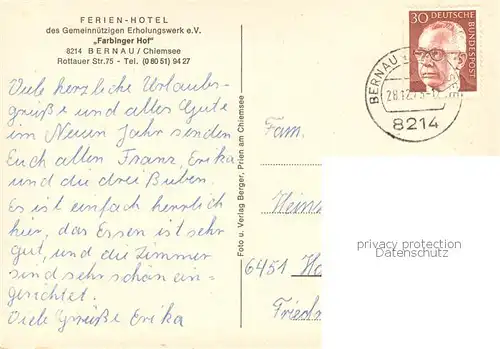 FERIEN-HOTEL
des Gemeinnützigen Erholungswerk e.V.
„Farbinger Hof"
8214 BERNAU / Chiemsee
Rottauer Str.75 - Tel. (0 80 51) 94 27
Viele herzliche Urlaubs-
grüße und alles Gute
im Neuen Jahr senden
Euch allen Franz, Erika
und die drei Buben.
Es ist einfach herrlich
hier, das Essen ist sehr
gut, und die Zimmer
sind sehr schön ein-
gerichtet.
Viele Grüße Erika
Foto u. Verlag Berger, Prien am Chiemsee
30 DEUTSCHE
BUNDESPOST
BERNAU
28.12.73
8214
Fam.
6451
privacy protection
Datenschutz